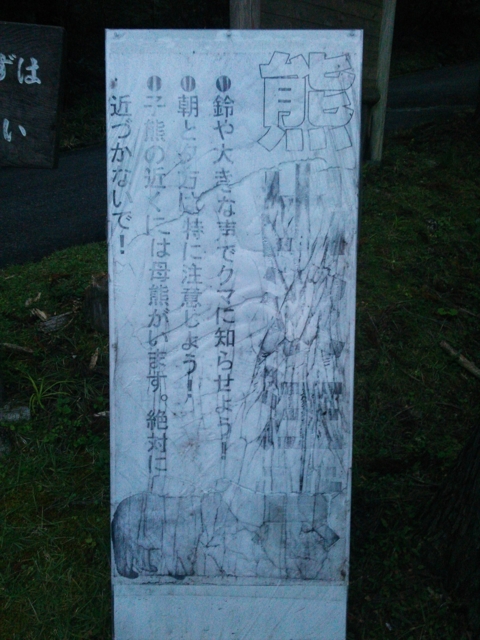 熊
❶鈴や大きな声でクマに知らせよう!
❶朝と夕方は特に注意しよう!
❶子熊の近くには母熊がいます。絶対に
近づかないで!
ずは
い